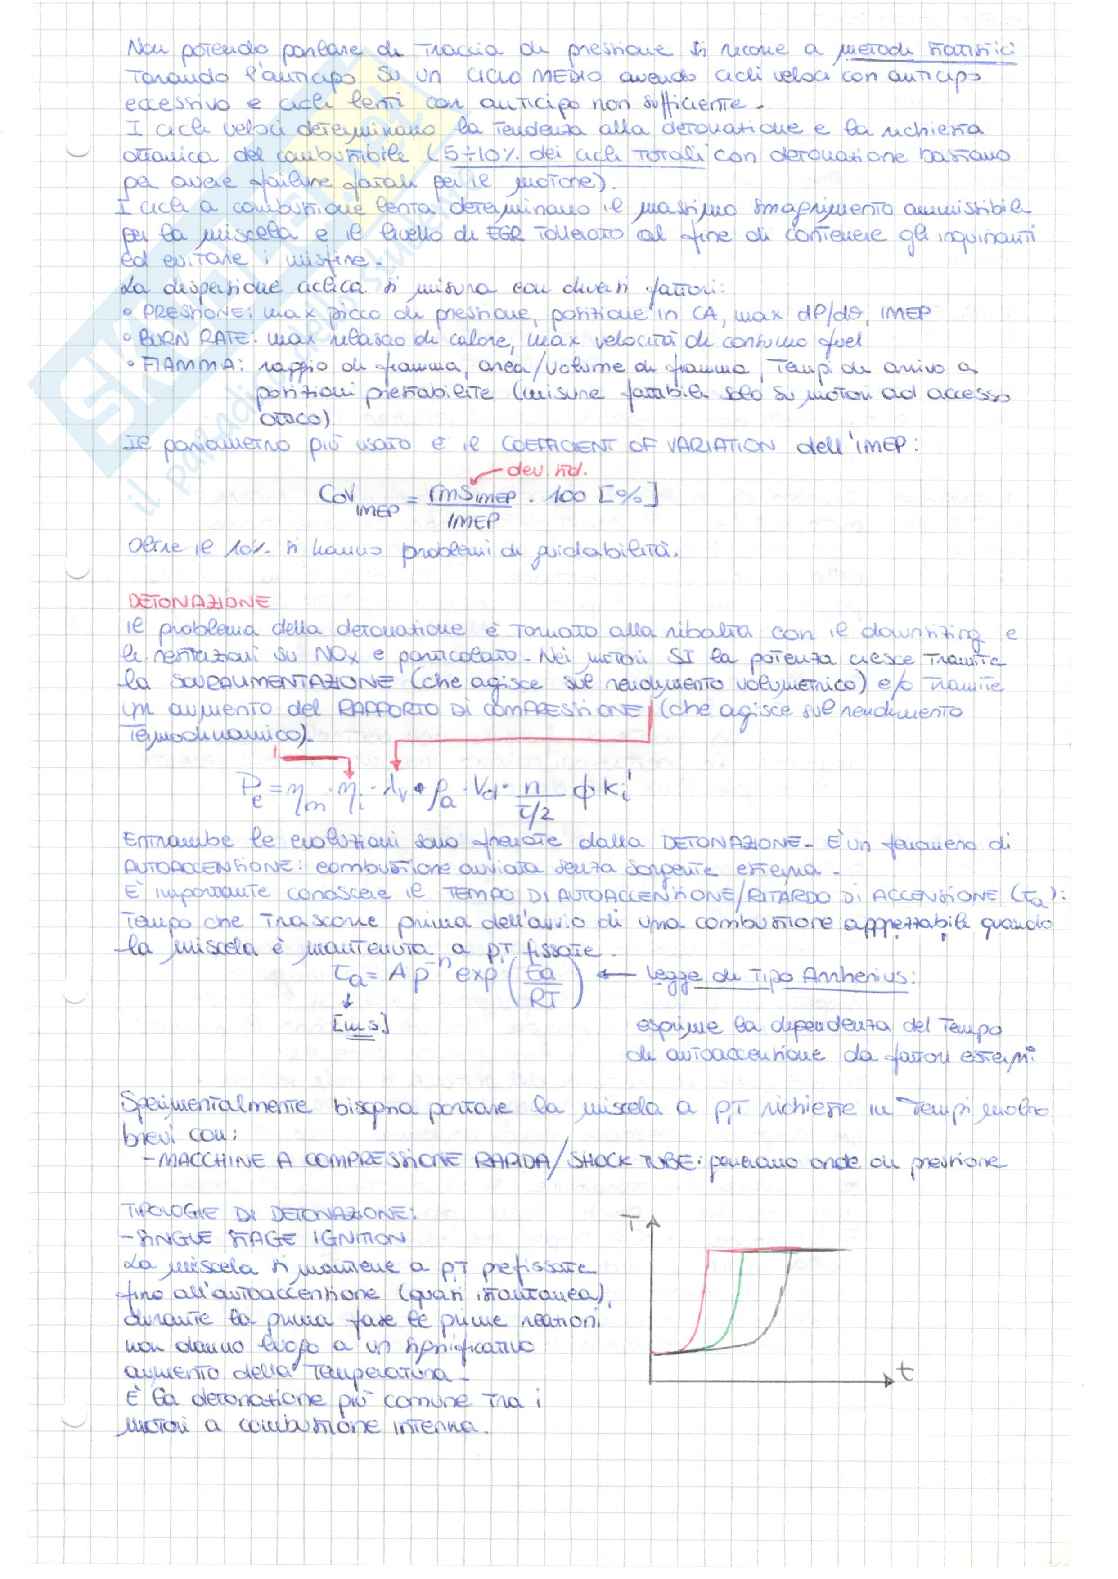 Non potendo parlare di traccia di pressione si ricorre a metodi statistici
tarando l'anticipo su un ciclo MEDIO avendo cicli veloci con anticipo
eccessivo e cicli lenti con anticipo non sufficiente.
I cicli veloci determinano la tendenza alla detonazione e la richiesta
ottanica del combustibile (5÷10% dei cicli totali con detonazione bastano
per avere failure fatali per il motore).
I cicli a combustione lenta determinano il massimo smagrimento ammissibile
per la miscela e il livello di EGR tollerato al fine di contenere gli inquinanti
ed evitare i misfire.
La dispersione ciclica si misura con diversi fattori:
• PRESSIONE: max picco di pressione, posizione in CA, max dP/dθ, IMEP
• BURN RATE: max rilascio di calore, max velocità di consumo fuel
• FIAMMA: raggio di fiamma, area/volume di fiamma, tempi di arrivo a
posizioni prestabilite (misure fattibili solo su motori ad accesso
ottico)
Il parametro più usato è il COEFFICIENT OF VARIATION dell'IMEP:
dev. std.
CoV IMEP = rms IMEP / IMEP · 100 [%]
Oltre il 10% si hanno problemi di guidabilità.
DETONAZIONE
Il problema della detonazione è tornato alla ribalta con il downsizing e
le restrizioni su NOx e particolato. Nei motori SI la potenza cresce tramite
la SOVRALIMENTAZIONE (che agisce sul rendimento volumetrico) e/o tramite
un aumento del RAPPORTO DI COMPRESSIONE (che agisce sul rendimento
termodinamico).
Pe = ηm · ηi · λv · ρa · Vd · n / τ/2 ϕ Ki'
Entrambe le evoluzioni sono frenate dalla DETONAZIONE. È un fenomeno di
AUTOACCENSIONE: combustione avviata senza sorgente esterna.
È importante conoscere il TEMPO DI AUTOACCENSIONE/RITARDO DI ACCENSIONE (τa):
tempo che trascorre prima dell'avvio di una combustione apprezzabile quando
la miscela è mantenuta a p,T fissate.
τa = A p^-n exp (Ea / RT) ← Legge di tipo Arrhenius:
[ms]
esprime la dipendenza del tempo
di autoaccensione da fattori esterni
Sperimentalmente bisogna portare la miscela a p,T richieste in tempi molto
brevi con:
- MACCHINE A COMPRESSIONE RAPIDA/SHOCK TUBE: generano onde di pressione
TIPOLOGIE DI DETONAZIONE:
- SINGLE STAGE IGNITION
La miscela si mantiene a p,T prefissate
fino all'autoaccensione (quasi istantanea),
durante la prima fase le prime reazioni
non danno luogo a un significativo
aumento della temperatura.
È la detonazione più comune tra i
motori a combustione interna.
T
t